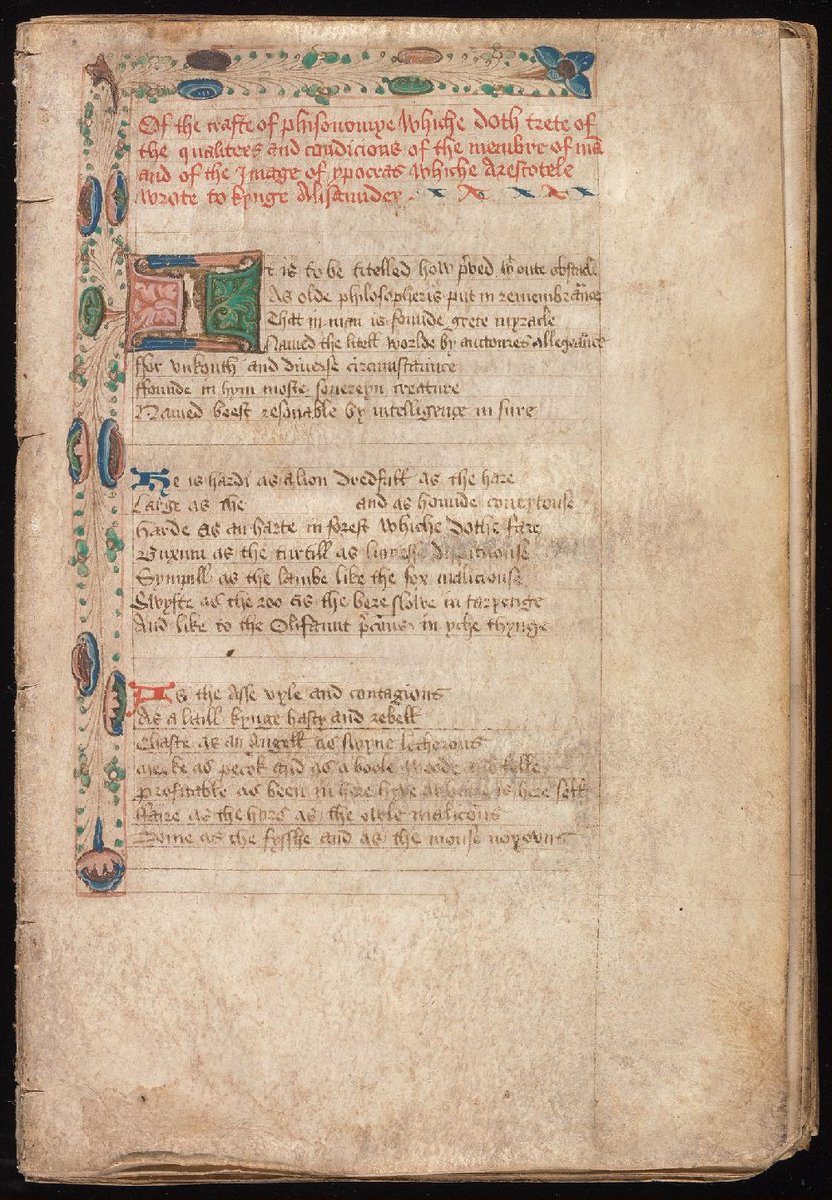 Of the crafte of phisonomye Whiche doth trete of
the qualitees and condicions of the membre of mā
and of the Image of ypocras Whiche Arestotele
wrote to kynge Alisaunder
It is to be titelled how pved wtoute obstacle
As olde philosopheris put in remembrance
That in man is founde grete myracle
Named the litell worlde by auctoures allegeaunce
ffor unkouth and diverse circumstaunce
ffounde in hym moste sovereyn creature
Named beest resonable by intelligence in sure
He is hardi as a lion dredfull as the hare
Large as the and as hounde coveytouse
Harde as an harte in forest Whiche dothe fare
Buxum as the turtill as
Sympill as the lambe like the fox maliciouse
Swyfte as the roo as the bere slowe in tarpenge
And like to the Olifaunt in yche thynge
As the Asse vyle and contagious
As a litill kynge hasty and rebell
Chaste as an Angell as swyne lecherous
Meke as pecok and as a boole woode and felle
Profitable as been in here hyve is here sell
ffaire as the hors as the owle malicous
Dome as the fysshe and as the mouse noyous